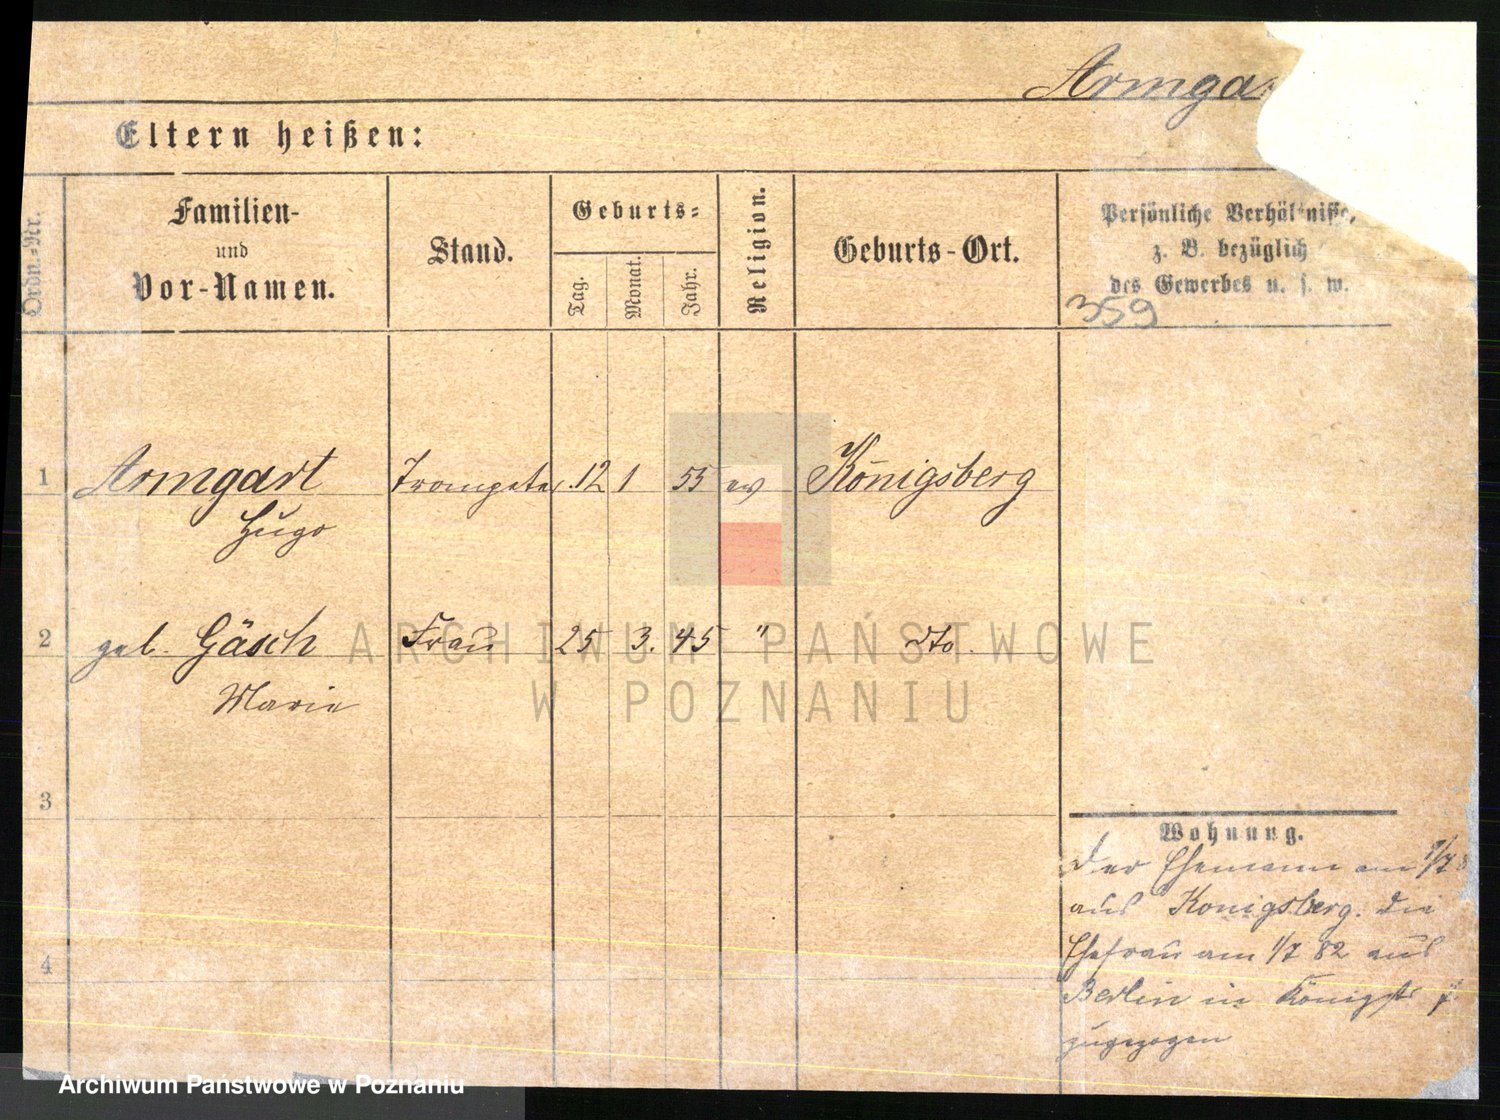 Armgar
Eltern heißen:
Ordn.-Nr.
Familien-
und
Vor-Namen.
Stand.
Geburts-
Tag.
Monat.
Jahr.
Religion.
Geburts-Ort.
Persönliche Verhältnisse,
z. B. bezüglich
des Gewerbes u. s. w.
359
1 Armgart Trompeter 12 1 55 ev Königsberg
Hugo
2 geb. Gäsch Frau 25 3. 45 " dto.
Marie
3
4
Wohnung.
Der Ehemann am 1/7 8
aus Königsberg. Die
Ehefrau am 1/7 82 aus
Berlin in Königstr 7
zugezogen
ARCHIWUM PAŃSTWOWE
W POZNANIU
Archiwum Państwowe w Poznaniu